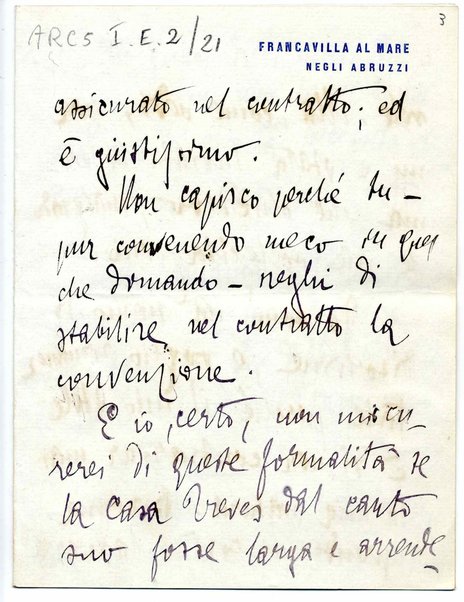 ARC5 I.E.2/21
3
FRANCAVILLA AL MARE
NEGLI ABRUZZI
assicurato nel contratto; ed
è giustissimo.
Non capisco perché tu –
pur convenendo meco in quel
che domando – neghi di
stabilire nel contratto la
convenzione.
E io, certo, non mi cu-
rerei di queste formalità se
la Casa Treves dal canto
suo fosse larga e arrende